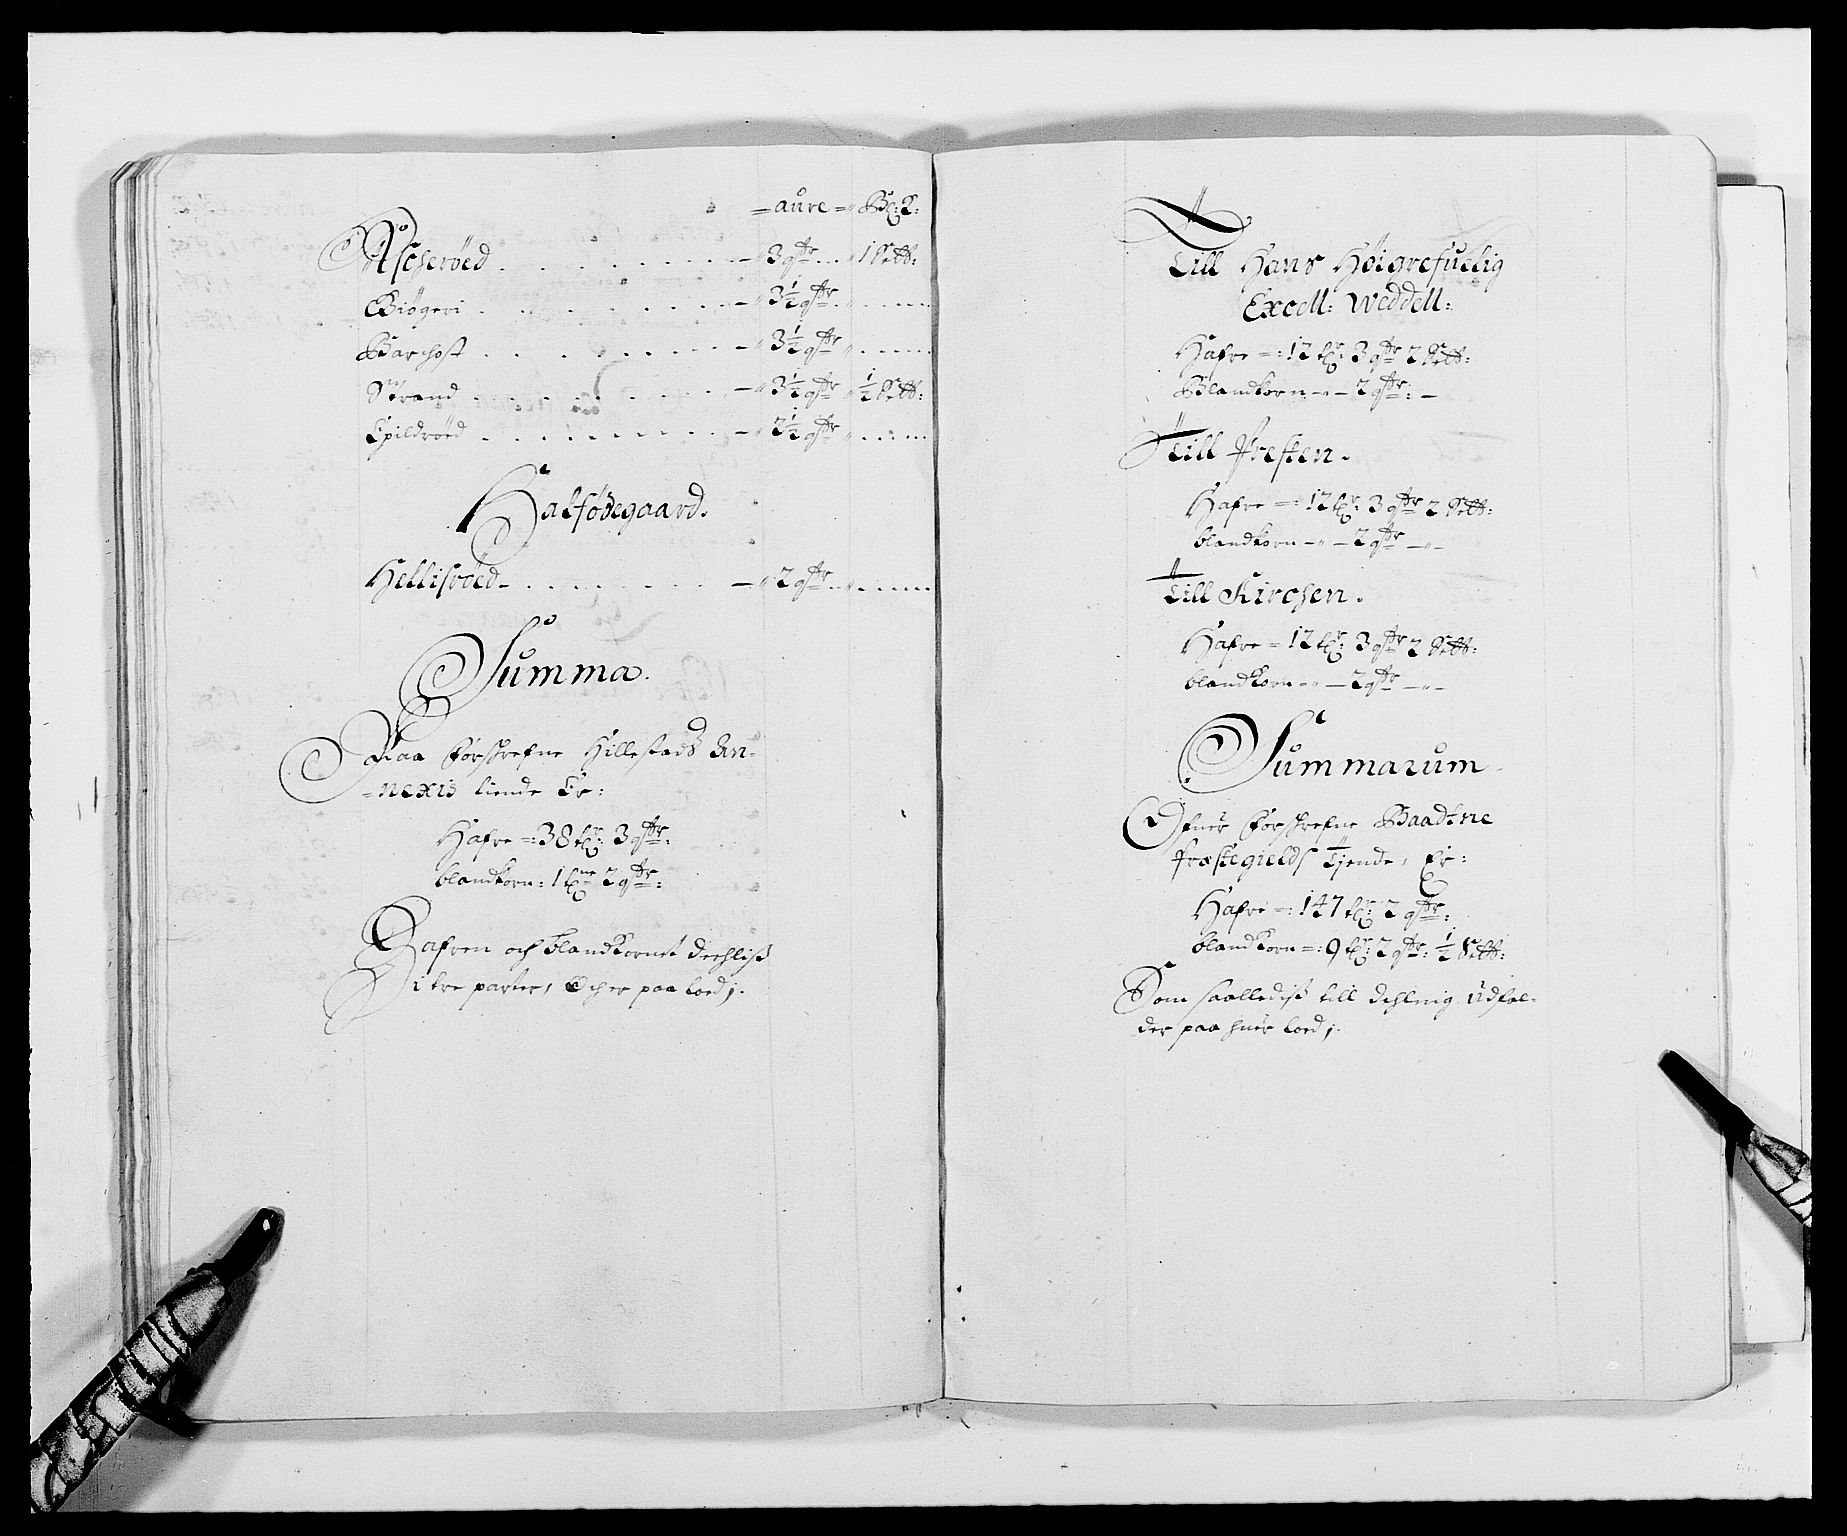 = aure = Bl: K:
Ascherøed . . . . . . . . — 3 qtr . . 1 Sett:
Biøgeri . . . . . . . . — 3 1/2 qtr . . . . .
Barchost . . . . . . . . — 3 1/2 qtr . . . . .
Strand . . . . . . . . — 3 1/2 qtr 1/2 Sett:
Epildrøed . . . . . . . . — 2 1/2 qtr . . . . .
Halfødegaard.
Hellisrøed — . . . . . . . — 2 qtr . . . . . .
Summa.
Paa forschrefne Hillestads An-
=nexis tiende Er:
Hafre =: 38 tr: 3 qtr:
blandkorn: 1 tne 2 qtr:
Hafren och blandkornet deehliß
i tre parter, Och er paa loed;
Till Hans Høigrefuelig
Excell: Weddell:
Hafre =: 12 tr: 3 qtr 2 Sett:
Blandkorn — 2 qtr: —
Till Presten.
Hafre =: 12 tr: 3 qtr 2 Sett:
blandkorn — — 2 qtr —
Till Kirchen.
Hafre = 12 tr: 3 qtr 2 Sett:
blandkorn — — 2 qtr —
Summarum
Ofuer forschrefne Baadtne
Præstegields Tjende, Er:
Hafre =: 147 tr: 2 qtr:
blandkorn =: 9 tr: 2 qtr: 1/2 Sett:
Som saallediß till dehlnig udfal-
der paa huer loed;